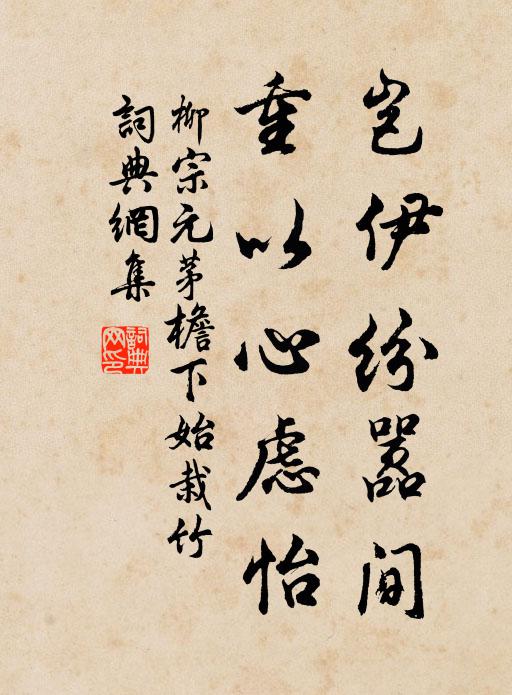 岂伊纷嚣间
重以心虑怡
柳宗元茅檐下始栽竹
詞典網集
詞典網印